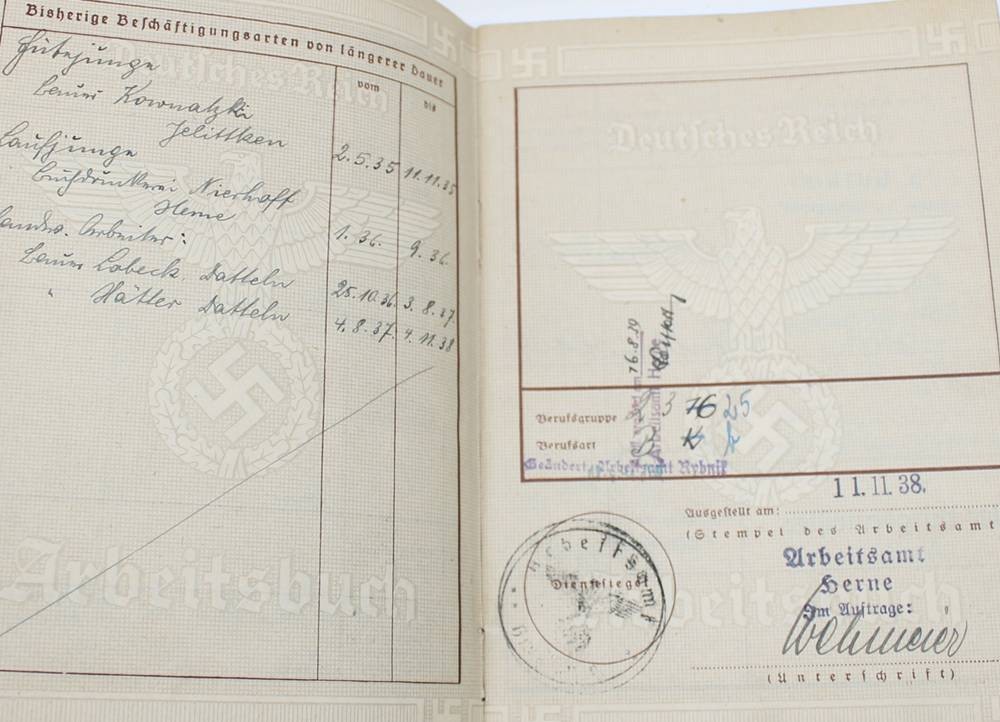 Bisherige Beschäftigungsarten von längerer Dauer
vom bis
Hütejunge
Bauer Kownatzki
Jelittken 2.5.35 11.11.35
Laufjunge
Buchdruckerei Nierhoff
Herne 1.36. 9.36.
Landw. Arbeiter:
Bauer Lobeck Datteln 25.10.36. 3.8.37.
" Hätter Datteln 4.8.37. 4.11.38
Deutsches Reich
Arbeitsbuch
Deutsches Reich
Berufsgruppe 23 16 25
Berufsart
Geändert, Arbeitsamt Rybnik
11.11.38.
Ausgestellt am:
(Stempel des Arbeitsamt
Arbeitsamt
Herne
Im Auftrage:
Wehmeier
(Unterschrift)
Arbeitsamt
Dienstsiegel
Arbeitsbuch